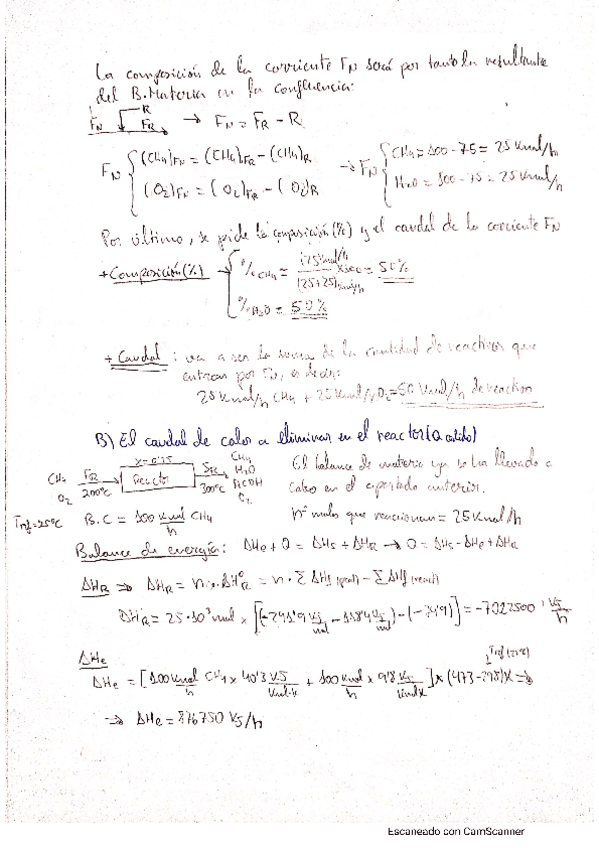 La composición de la corriente FN será por tanto la resultante
del B.Materia en la confluencia:
R
FN FR → FN = FR - R
FN { (CH4)FN = (CH4)FR - (CH4)R → FN { CH4 = 100 - 75 = 25 Kmol/h
(O2)FN = (O2)FR - (O2)R H2O = 100 - 75 = 25 Kmol/h
Por último, se pide la composición (%) y el caudal de la corriente FN
+ Composición (%) → { % CH4 = 25 Kmol/h / (25+25) Kmol/h x 100 = 50%
% H2O = 50%
+ Caudal : va a ser la suma de la cantidad de reactivos que
entran por FN, es decir:
25 Kmol/h CH4 + 25 Kmol/h O2 = 50 Kmol/h de reaction
B) El caudal de calor a eliminar en el reactor (Q cedido)
CH4 O2 FR 200ºC x=0'25 Reactor SR 300ºC CH4 H2O HCOH O2
El balance de materia ya se ha llevado a
cabo en el apartado anterior.
Tref=25ºC B.C = 100 Kmol/h CH4 nº moles que reaccionan = 25 Kmol/h
Balance de energía: ΔHe + Q = ΔHs + ΔHR → Q = ΔHs - ΔHe + ΔHR
ΔHR ⇒ ΔHR = n · ΔHºR = n · Σ ΔHf (prod) - Σ ΔHf (react)
ΔHR = 25·10³ mol x [(-241'9 KJ/mol - 118'4 KJ/mol) - (-74'9)] = KJ/h
ΔHe Tref (298)
ΔHe = [100 Kmol/h CH4 x 40'3 KJ/Kmol·K + 100 Kmol/h x KJ/Kmol·K] x (473 - 298)K ⇒
⇒ ΔHe = 876750 KJ/h
Escaneado con CamScanner